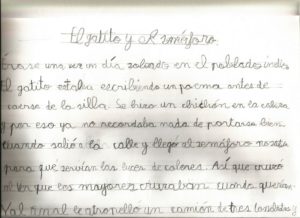 El gatito y el semáforo.
Érase una vez un día soleado en el poblado indio.
El gatito estaba escribiendo un poema antes de
caerse de la silla. Se hizo un chichón en la cabeza
y por eso ya no recordaba nada de portarse bien
cuando salió a la calle y llegó al semáforo no sabía
para qué servían las luces de colores. Así que cruzó
al ver que los mayores cruzaban cuando querían
Y al final le atropelló un camión de tres toneladas